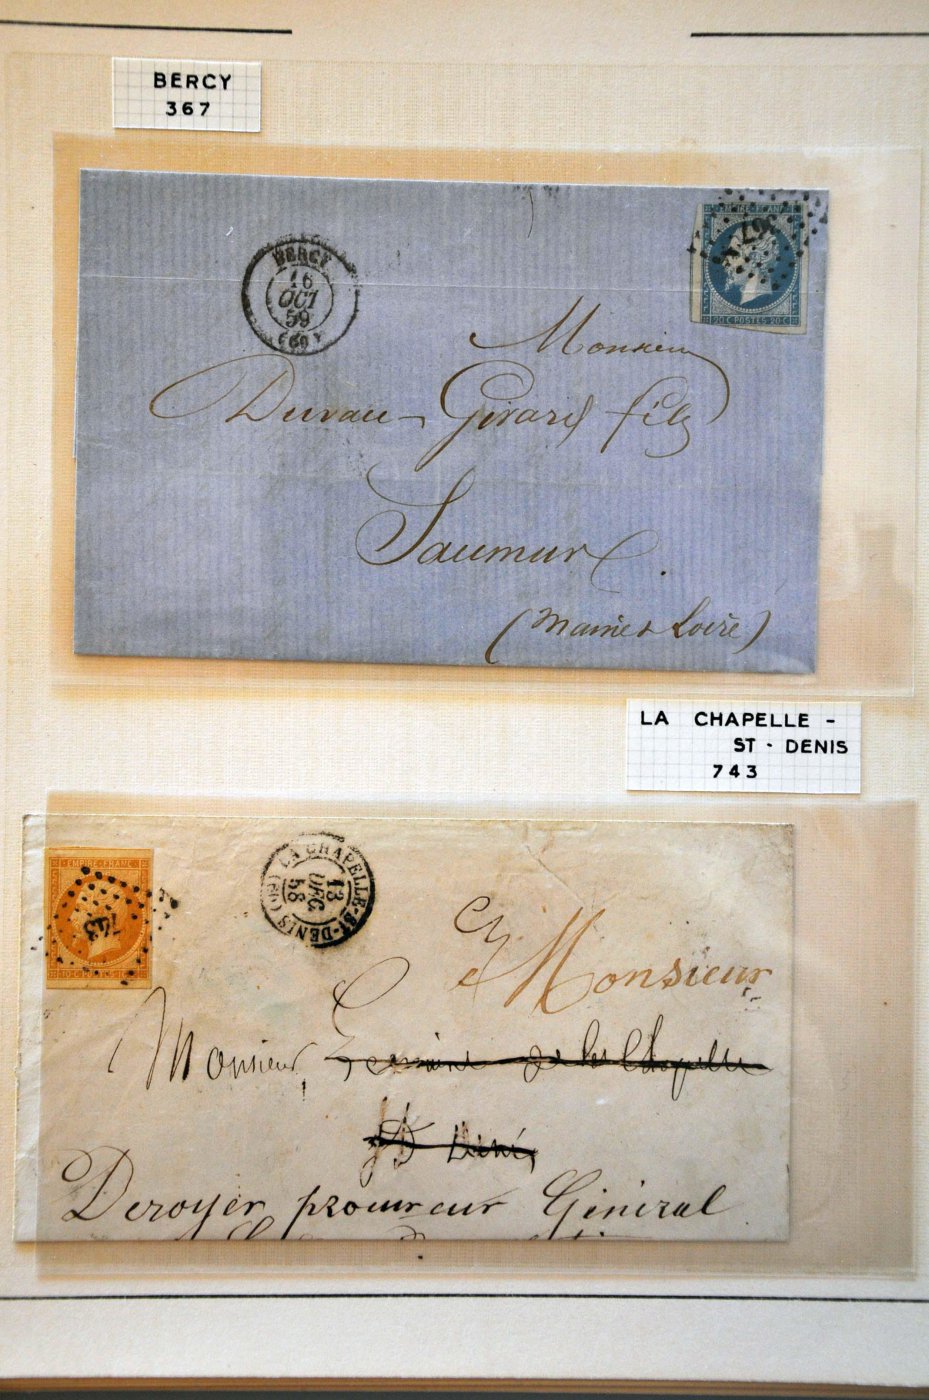 BERCY
367
BERCY
16
OCT
59
(60)
367
EMPIRE FRANC
20 C POSTES 20 C
Monsieur
Duvau-Girard fils
Saumur
(Maine & Loire)
LA CHAPELLE -
ST - DENIS
743
EMPIRE FRANC
743
10 C POSTES 10 C
LA CHAPELLE-ST-DENIS (60)
13
DEC
58
Monsieur
Monsieur, de la Chapelle
St Denis
Deroyer procureur Général